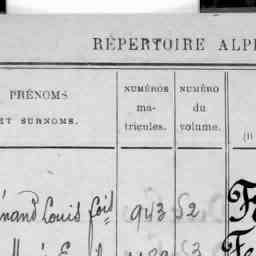 RÉPERTOIRE ALP
PRÉNOMS
ET SURNOMS.
NUMÉROS
ma-
tricules.
NUMÉRO
du
volume.
(Il
nand Louis fois 943 52